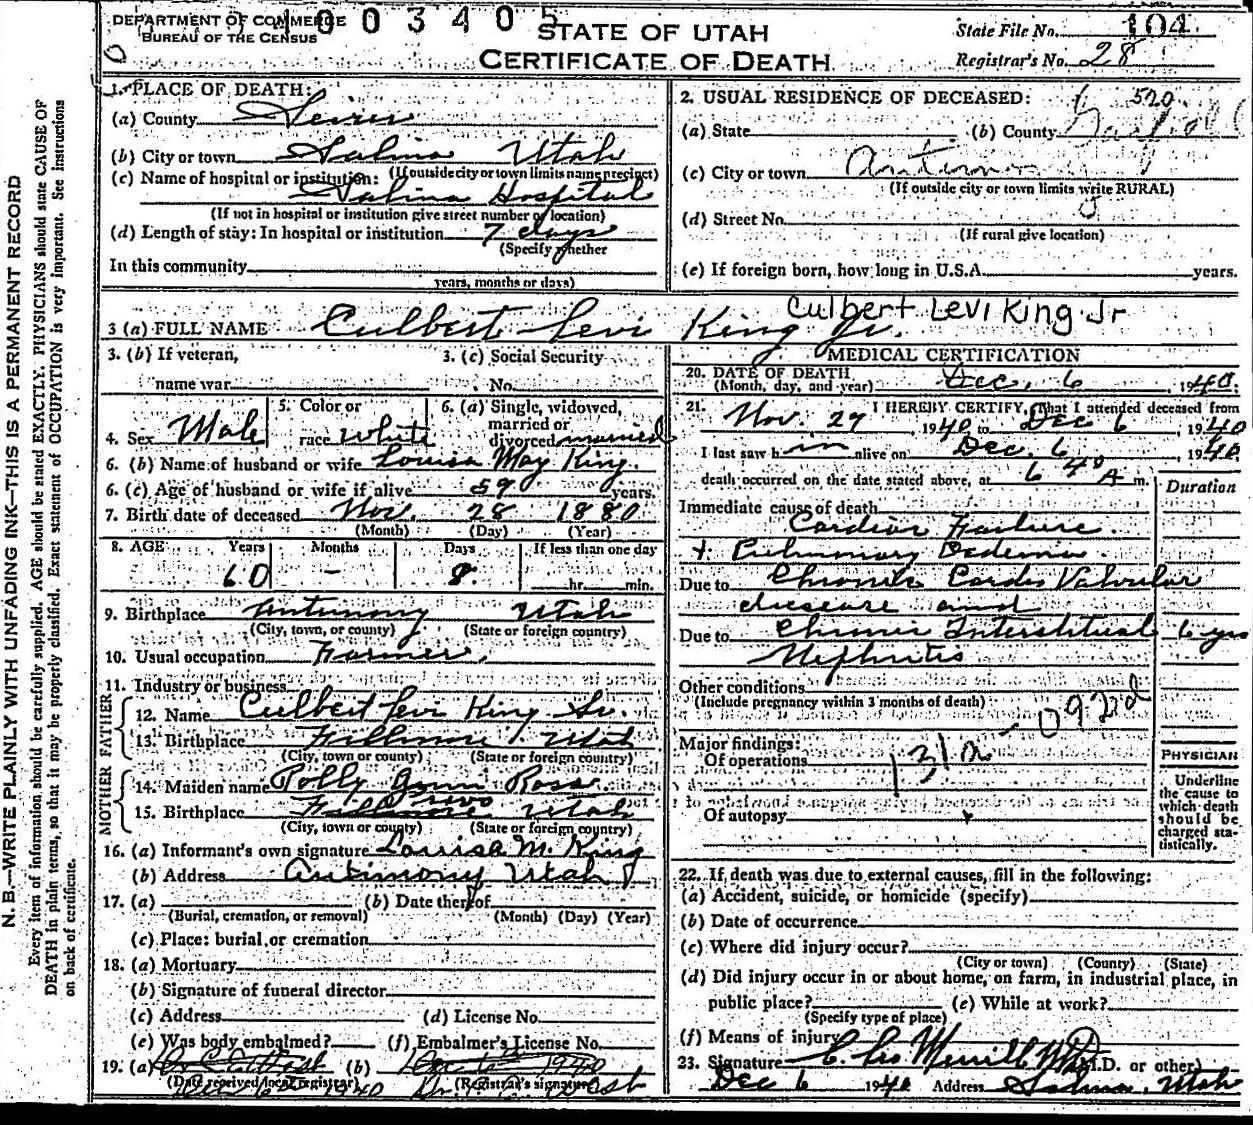 1003405
DEPARTMENT OF COMMERCE
BUREAU OF THE CENSUS
STATE OF UTAH
CERTIFICATE OF DEATH
State File No. 104
Registrar's No. 28
N. B.—WRITE PLAINLY WITH UNFADING INK—THIS IS A PERMANENT RECORD
Every item of information should be carefully supplied. AGE should be stated EXACTLY. PHYSICIANS should state CAUSE OF
DEATH in plain terms, so that it may be properly classified. Exact statement of OCCUPATION is very important. See instructions
on back of certificate.
1. PLACE OF DEATH:
(a) County Sevier
(b) City or town Salina Utah
(If outside city or town limits name precinct)
(c) Name of hospital or institution:
Salina Hospital
(If not in hospital or institution give street number or location)
(d) Length of stay: In hospital or institution 7 days
(Specify whether
In this community
years, months or days)
2. USUAL RESIDENCE OF DECEASED: 520
(a) State (b) County Garfield
(c) City or town Antimony
(If outside city or town limits write RURAL)
(d) Street No.
(If rural give location)
(e) If foreign born, how long in U.S.A. years.
Culbert Levi King Jr
3 (a) FULL NAME Culbert Levi King Jr.
3. (b) If veteran, 3. (c) Social Security
name war No.
4. Sex Male
5. Color or
race White
6. (a) Single, widowed,
married or
divorced married
6. (b) Name of husband or wife Louisa May King.
6. (c) Age of husband or wife if alive 59 years.
7. Birth date of deceased Nov. 28 1880
(Month) (Day) (Year)
8. AGE Years Months Days If less than one day
60 - 8 hr. min.
9. Birthplace Antimony Utah
(City, town, or county) (State or foreign country)
10. Usual occupation Farmer.
11. Industry or business
FATHER
12. Name Culbert Levi King Sr.
13. Birthplace Fillmore Utah
(City, town or county) (State or foreign country)
MOTHER
14. Maiden name Polly Ann Ross
15. Birthplace Fillmore Utah
(City, town or county) (State or foreign country)
16. (a) Informant's own signature Louisa M. King
(b) Address Antimony Utah
17. (a) (b) Date thereof
(Burial, cremation, or removal) (Month) (Day) (Year)
(c) Place: burial or cremation
18. (a) Mortuary
(b) Signature of funeral director
(c) Address (d) License No.
(e) Was body embalmed? (f) Embalmer's License No.
19. (a) (b) 1940
(Date received local registrar) (Registrar's signature)
Dec 6 1940
MEDICAL CERTIFICATION
20. DATE OF DEATH
(Month, day, and year) Dec. 6, 1940.
21. I HEREBY CERTIFY, That I attended deceased from
Nov. 29, 1940 to Dec 6, 1940
I last saw him alive on Dec. 6, 1940.
death occurred on the date stated above, at 6 40 A m.
Duration
Immediate cause of death
Cardiac Failure
+ Pulmonary Oedema.
Due to Chronic Cardio Valvular
disease and
Due to Chronic Interstitial 6 yrs
Nephritis
Other conditions
(Include pregnancy within 3 months of death)
Major findings:
Of operations
131a - 092d
Of autopsy
PHYSICIAN
Underline
the cause to
which death
should be
charged sta-
tistically.
22. If death was due to external causes, fill in the following:
(a) Accident, suicide, or homicide (specify)
(b) Date of occurrence
(c) Where did injury occur?
(City or town) (County) (State)
(d) Did injury occur in or about home, on farm, in industrial place, in
public place? (e) While at work?
(Specify type of place)
(f) Means of injury
23. Signature Merrill MD (M.D. or other)
Dec 6 1940 Address Salina, Utah